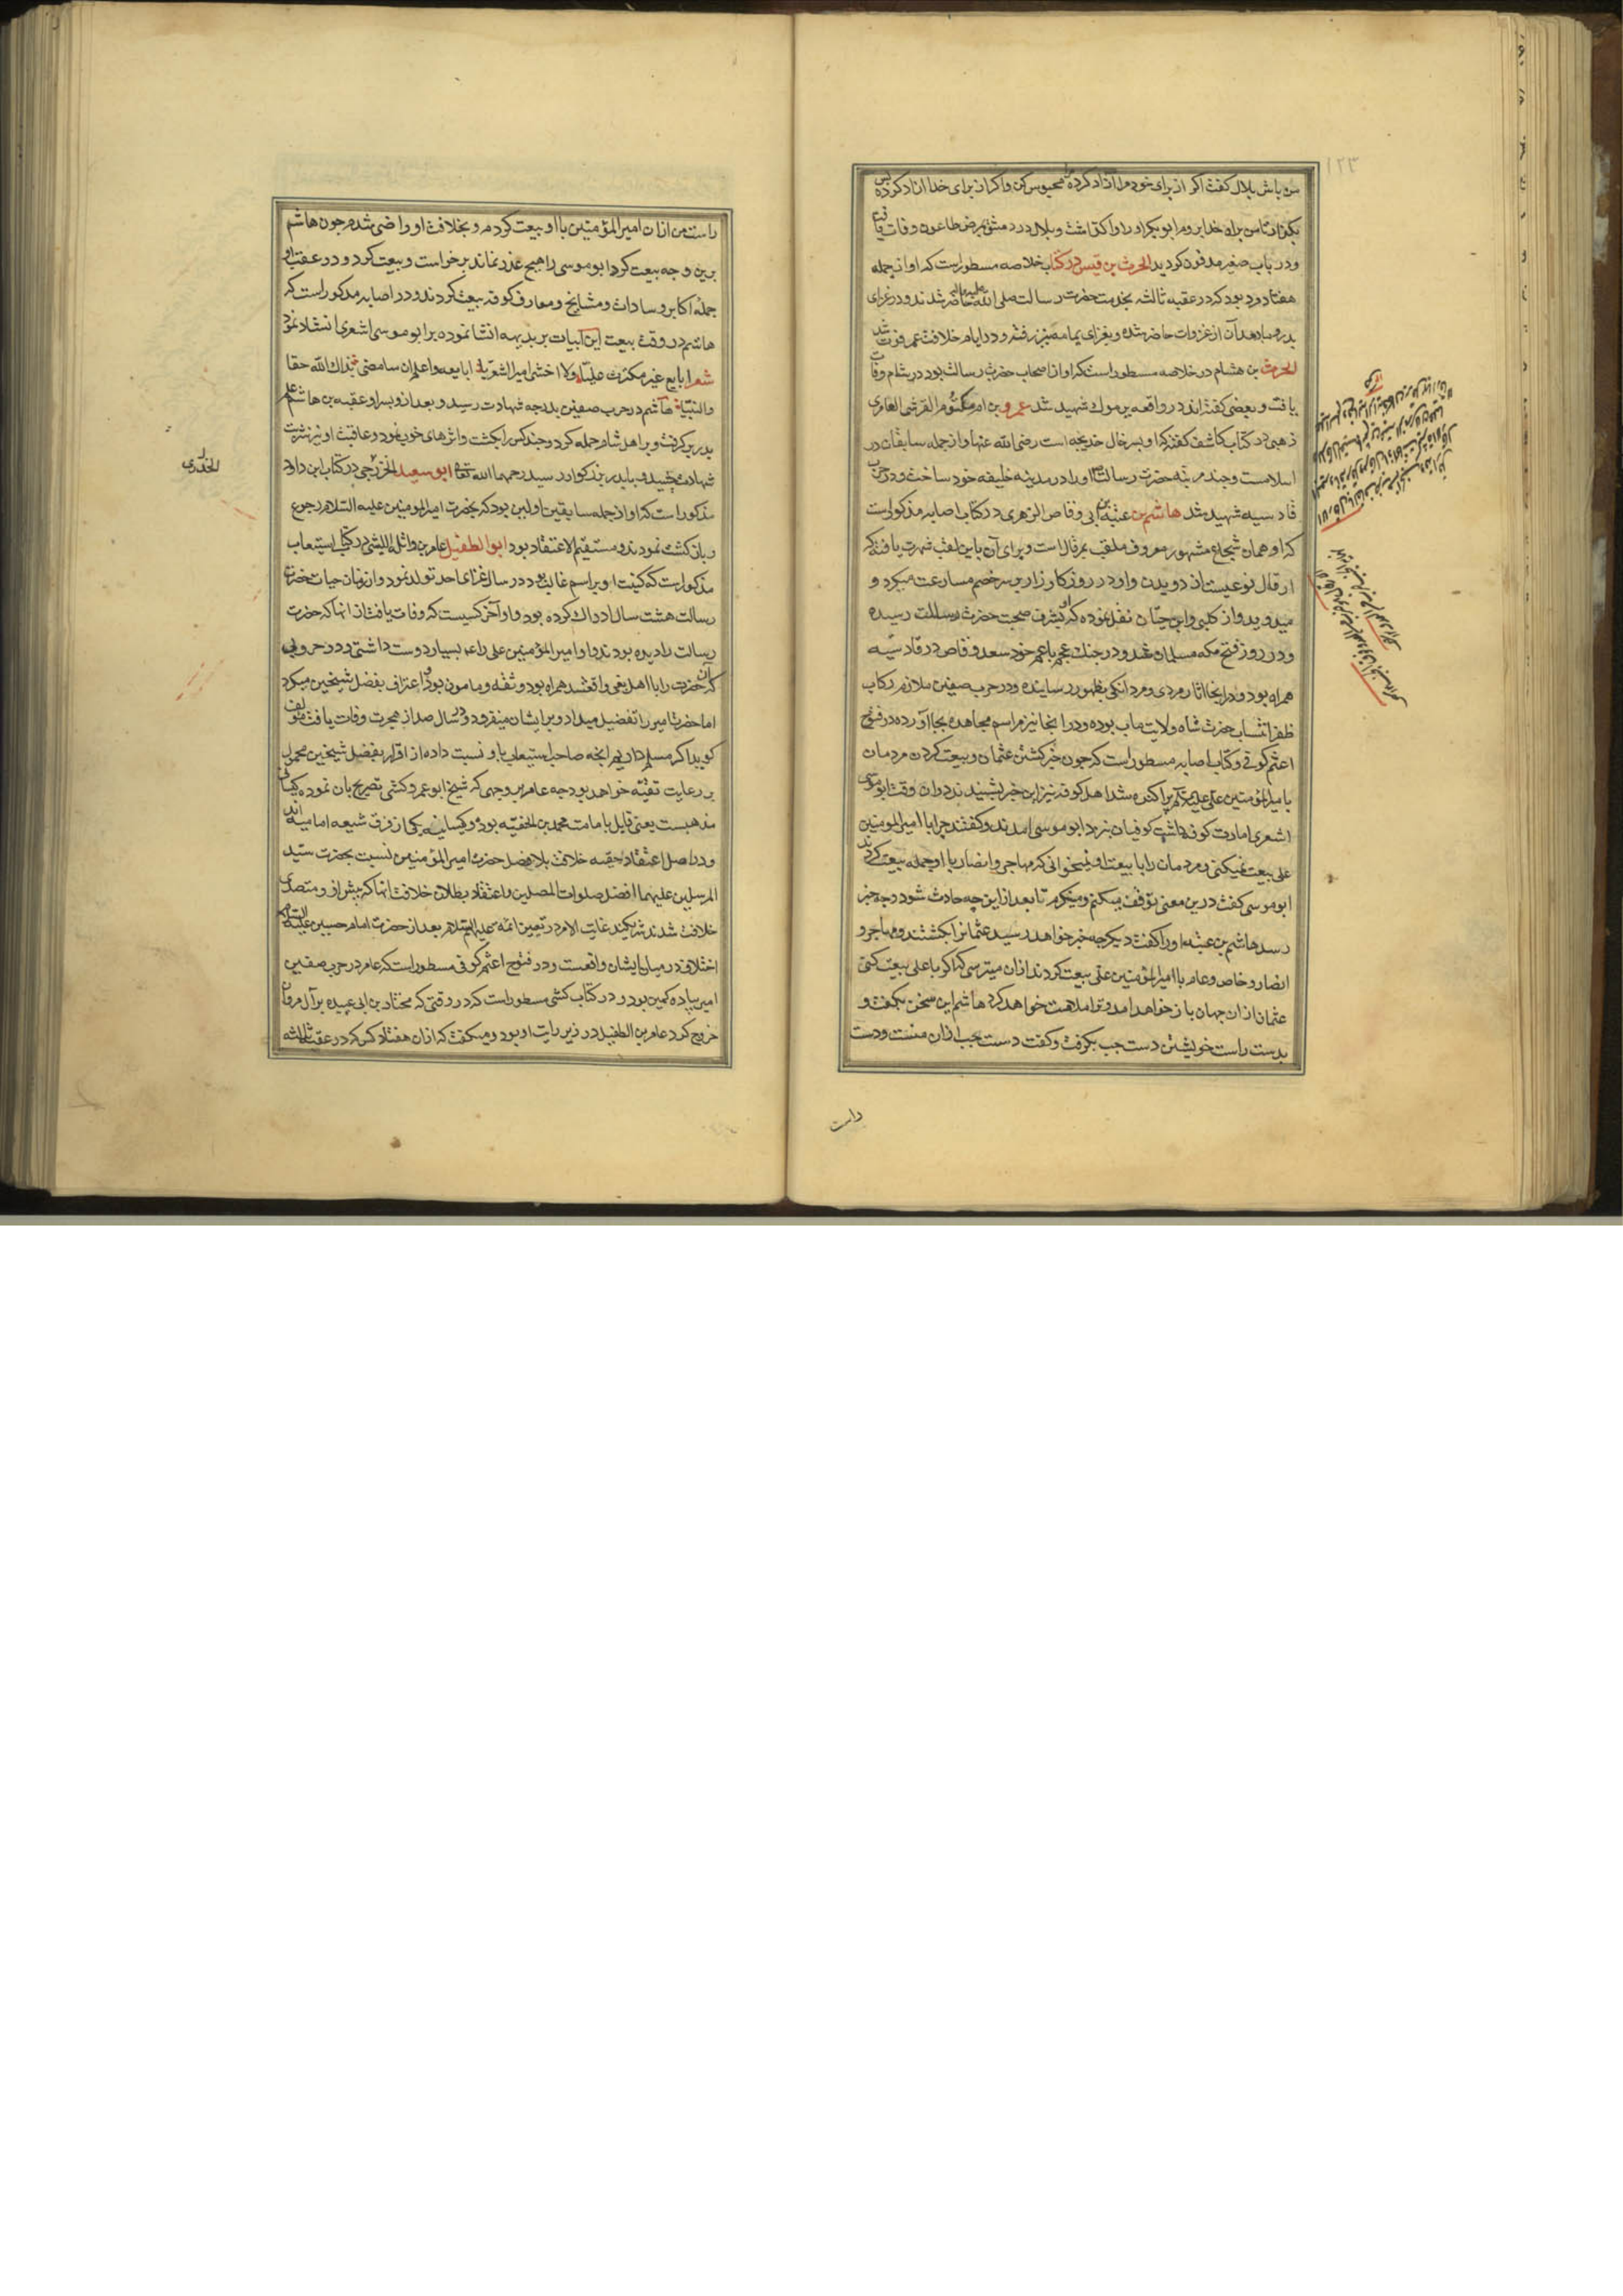 ۱۲۳
من باش بلال گفت اگر از برای خود مرا آزاد کرده محبوس کن و اگر از برای خدا ازاد کرده پس
بگذار تا من براه خدا بروم ابوبکر او را واگذاشت و بلال در دمشق بمرض طاعون وفات یافت
و در باب صغیر مدفون کردید الحرث بن قیس در کتاب خلاصه مسطور است که او از جمله
هفتاد مرد بود که در عقبه ثالثه بخدمت حضرت رسالت صلی الله علیه واله حاضر شدند و در غزای
بدر و مابعد آن از غزوات حاضر شده و بغزای یمامه نیز رفته و در ایام خلافت عمر فوت شد
الحرث بن هشام در خلاصه مسطور است که او از اصحاب حضرت رسالت بود در شام وفات
یافت و بعضی گفته‌اند در واقعه یرموک شهید شد عمرو بن ام مکتوم القرشی العامری
ذهبی در کتاب کاشف گفته که او پسر خال خدیجه است رضی الله عنها و از جمله سابقان در
اسلامست و چند مرتبه حضرت رسالت او را در مدینه خلیفه خود ساخت و در حرب
قادسیه شهید شد هاشم بن عتبة بن ابی وقاص الزهری در کتاب اصابه مذکور است
که او همان شجاع مشهور معروف ملقب بمرقال است و برای آن باین لقب شهرت یافته که
ارقال نوعیست از دویدن و او در روز کارزار بر سر خصم مسارعت میکرد و
میدوید و از کلبی و ابن حبان نقل نموده که او بشرف صحبت حضرت رسالت رسیده
و در روز فتح مکه مسلمان شد و در جنک عجم با عم خود سعد وقاص در قادسیه
همراه بود و در اینجا اثار مردی و مردانکی بظهور رسانیده و در حرب صفین ملازم رکاب
ظفر انتساب حضرت شاه ولایت ماب بوده و در آنجا نیز مراسم مجاهده بجا آورده در فتوح
اعثم کوفی و کتاب اصابه مسطور است که چون خبر کشتن عثمان و بیعت کردن مردمان
با امیر المؤمنین علی علیه السلام پراکنده شد اهل کوفه نیز این خبر بشنیدند و در ان وقت ابو موسی
اشعری امارت کوفه داشت کوفیان نزد ابو موسی امدند و گفتند چرا با امیر المومنین
علی بیعت نمیکنی و مردمان را با بیعت او نمیخوانی که مهاجر و انصار با او جمله بیعت کردند
ابو موسی گفت درین معنی توقف میکنم و مینکرم تا بعد ازین چه حادث شود و چه خبر
رسد هاشم بن عتبه او را گفت دیکر چه خبر خواهد رسید عثمانرا بکشتند و مهاجر و
انصار و خاص و عام با امیر المؤمنین علی بیعت کردند ازان میترسی که اگر با علی بیعت کنی
عثمان از ان جهان باز خواهد امد و ترا ملامت خواهد کرد هاشم این سخن بگفت و
بدست راست خویشتن دست چپ بگرفت و گفت دست چپ ازان منست و دست
راست
راست من ازان امیر المؤمنین با او بیعت کردم و بخلافت او راضی شدم چون هاشم
برین وجه بیعت کرد ابو موسی را هیچ عذر نماند برخواست و بیعت کرد و در عقب او
جمله اکابر و سادات و مشایخ و معارف کوفه بیعت کردند و در اصابه مذکور است که
هاشم در وقت بیعت این ابیات بر بدیهه انشا نموده بر ابو موسی اشعری انشاد نمود
شعر ابایع غیر مکترث علیا ولا اخشی امیرا اشعریا ابایعه واعلم ان سارضی بذاك الله حقا
والنبیا هاشم در حرب صفین بدرجه شهادت رسید و بعد ازو پسر او عقبه بن هاشم علم
پدر برگرفت و بر اهل شام حمله کرد و چند کس را بکشت و اثرهای خوب نمود و عاقبت او نیز شربت
شهادت چشید و بپدر بزرکوار رسید رحمهما الله تعالی ابو سعید الخزرجی در کتاب ابن داود
الخدری
مذکور است که او از جمله سابقین اولین بود که بحضرت امیر المومنین علیه السلام رجوع
و بازکشت نمودند و مستقیم الاعتقاد بود ابو الطفیل عامر بن واثله اللیثی در کتاب استیعاب
مذکور است که کنیت او بر اسم غالب بود در سال غزای احد تولد نمود و از زمان حیات حضرت
رسالت هشت سال ادراک کرده بود و او آخر کسیست که وفات یافت از انها که حضرت
رسالت را دیده بودند و او امیر المؤمنین علی را بسیار دوست داشتی و در حروبی
که آن حضرت را با اهل بغی واقع شد همراه بود و ثقه و مامون بود و اعتراف بفضل شیخین میکرد
اما حضرت امیر را تفضیل میداد و بر ایشان مینفرود و در سال صد از هجرت وفات یافت مؤلف
گوید اگر مسلم داریم انچه صاحب استیعاب باو نسبت داده از اقرار بفضل شیخین محمول
بر رعایت تقیه خواهد بود چه عامر بوجهی که شیخ ابو عمرو کشی تصریح بان نموده کیسانی
مذهبست یعنی قایل بامامت محمد بن الحنفیه بود و کیسانیه یکی از فرق شیعه امامیه اند
و در اصل اعتقاد حقیه خلافت بلافصل حضرت امیر المؤمنین نسبت بحضرت سید
المرسلین علیهما افضل صلوات المصلین و اعتقاد بطلان خلافت انها که پیش از و متصدی
خلافت شدند شریکند غایت الامر در تعیین ائمه علیهم السلام بعد از حضرت امام حسین علیه السلام
اختلاف در میان ایشان واقعست و در فتوح اعثم کوفی مسطور است که عامر در حرب صفین
امیر پیاده کمین بود و در کتاب کشی مسطور است که در وقتی که مختار بن ابی عبیده بر آل مروان
خروج کرد عامر بن الطفیل در زیر رایت او بود و میگفت که از ان هفتاد کس که در عقبه ثالثه